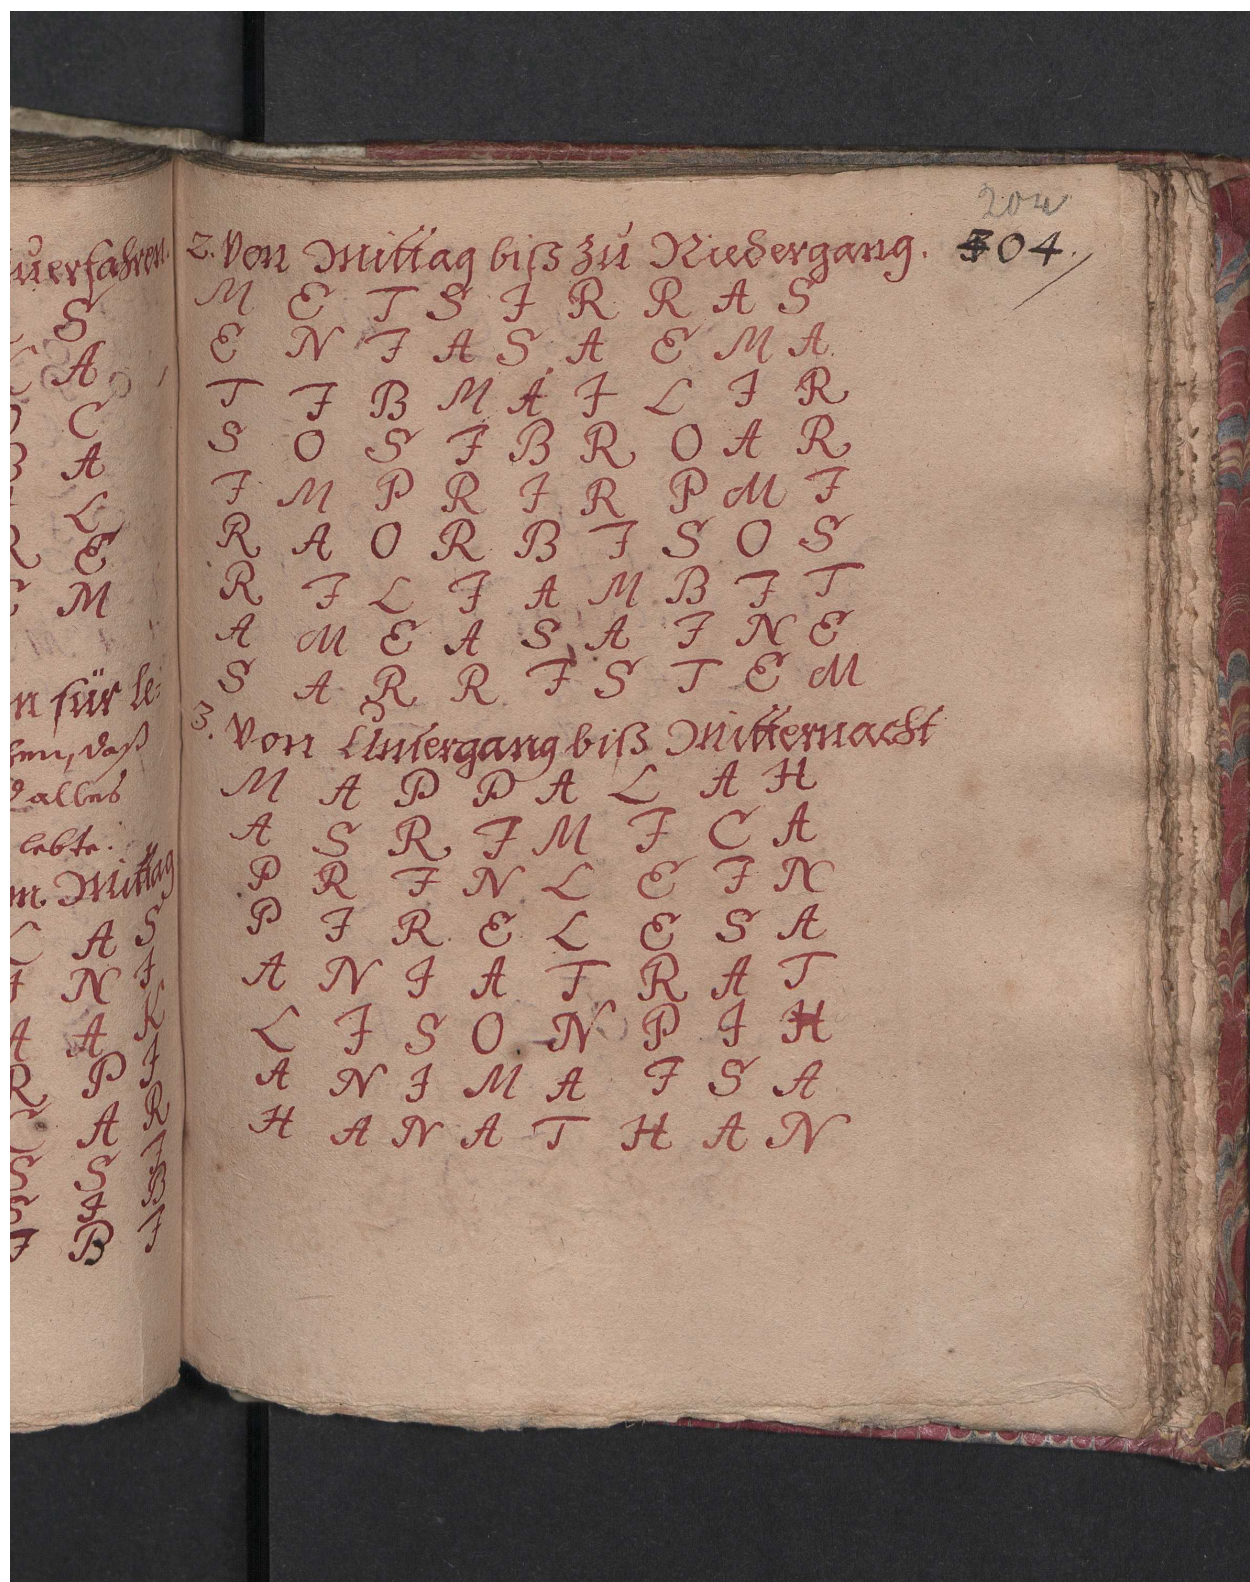 uerfahren.
S
C A
C
B A
L
R E
M
n für le=
hen, daß
alles
lebte.
n Mittag
C A S
I N I
A A K
R P I
C A R
S S I
S I B
I B I
204
304.
2. Von Mittag biß zu Niedergang.
M E T S I R R A S
E N I A S A E M A
T I B M A I L I R
S O S I B R O A R
I M P R I R P M I
R A O R B I S O S
R I L I A M B I T
A M E A S A I N E
S A R R I S T E M
3. Von Untergang biß Mitternacht
M A P P A L A H
A S R I M I C A
P R I N L E I N
P I R E L E S A
A N I A T R A T
L I S O N P I H
A N I M A I S A
H A N A T H A N